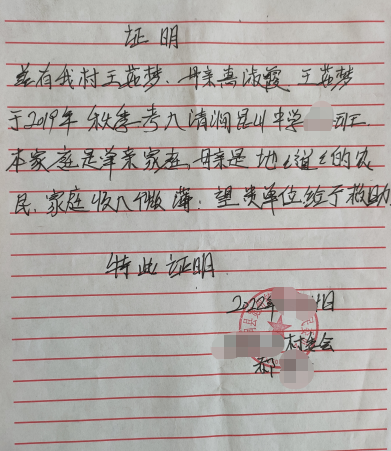 证明
兹有我村王茹梦、母亲高淑霞 王茹梦
于2019年秋季考入清涧昆山中学 同上
本家庭是单亲家庭,母亲是地地道道的农
民,家庭收入微薄;望贵单位给予救助
特此证明
2022年 4日
村委会
郝